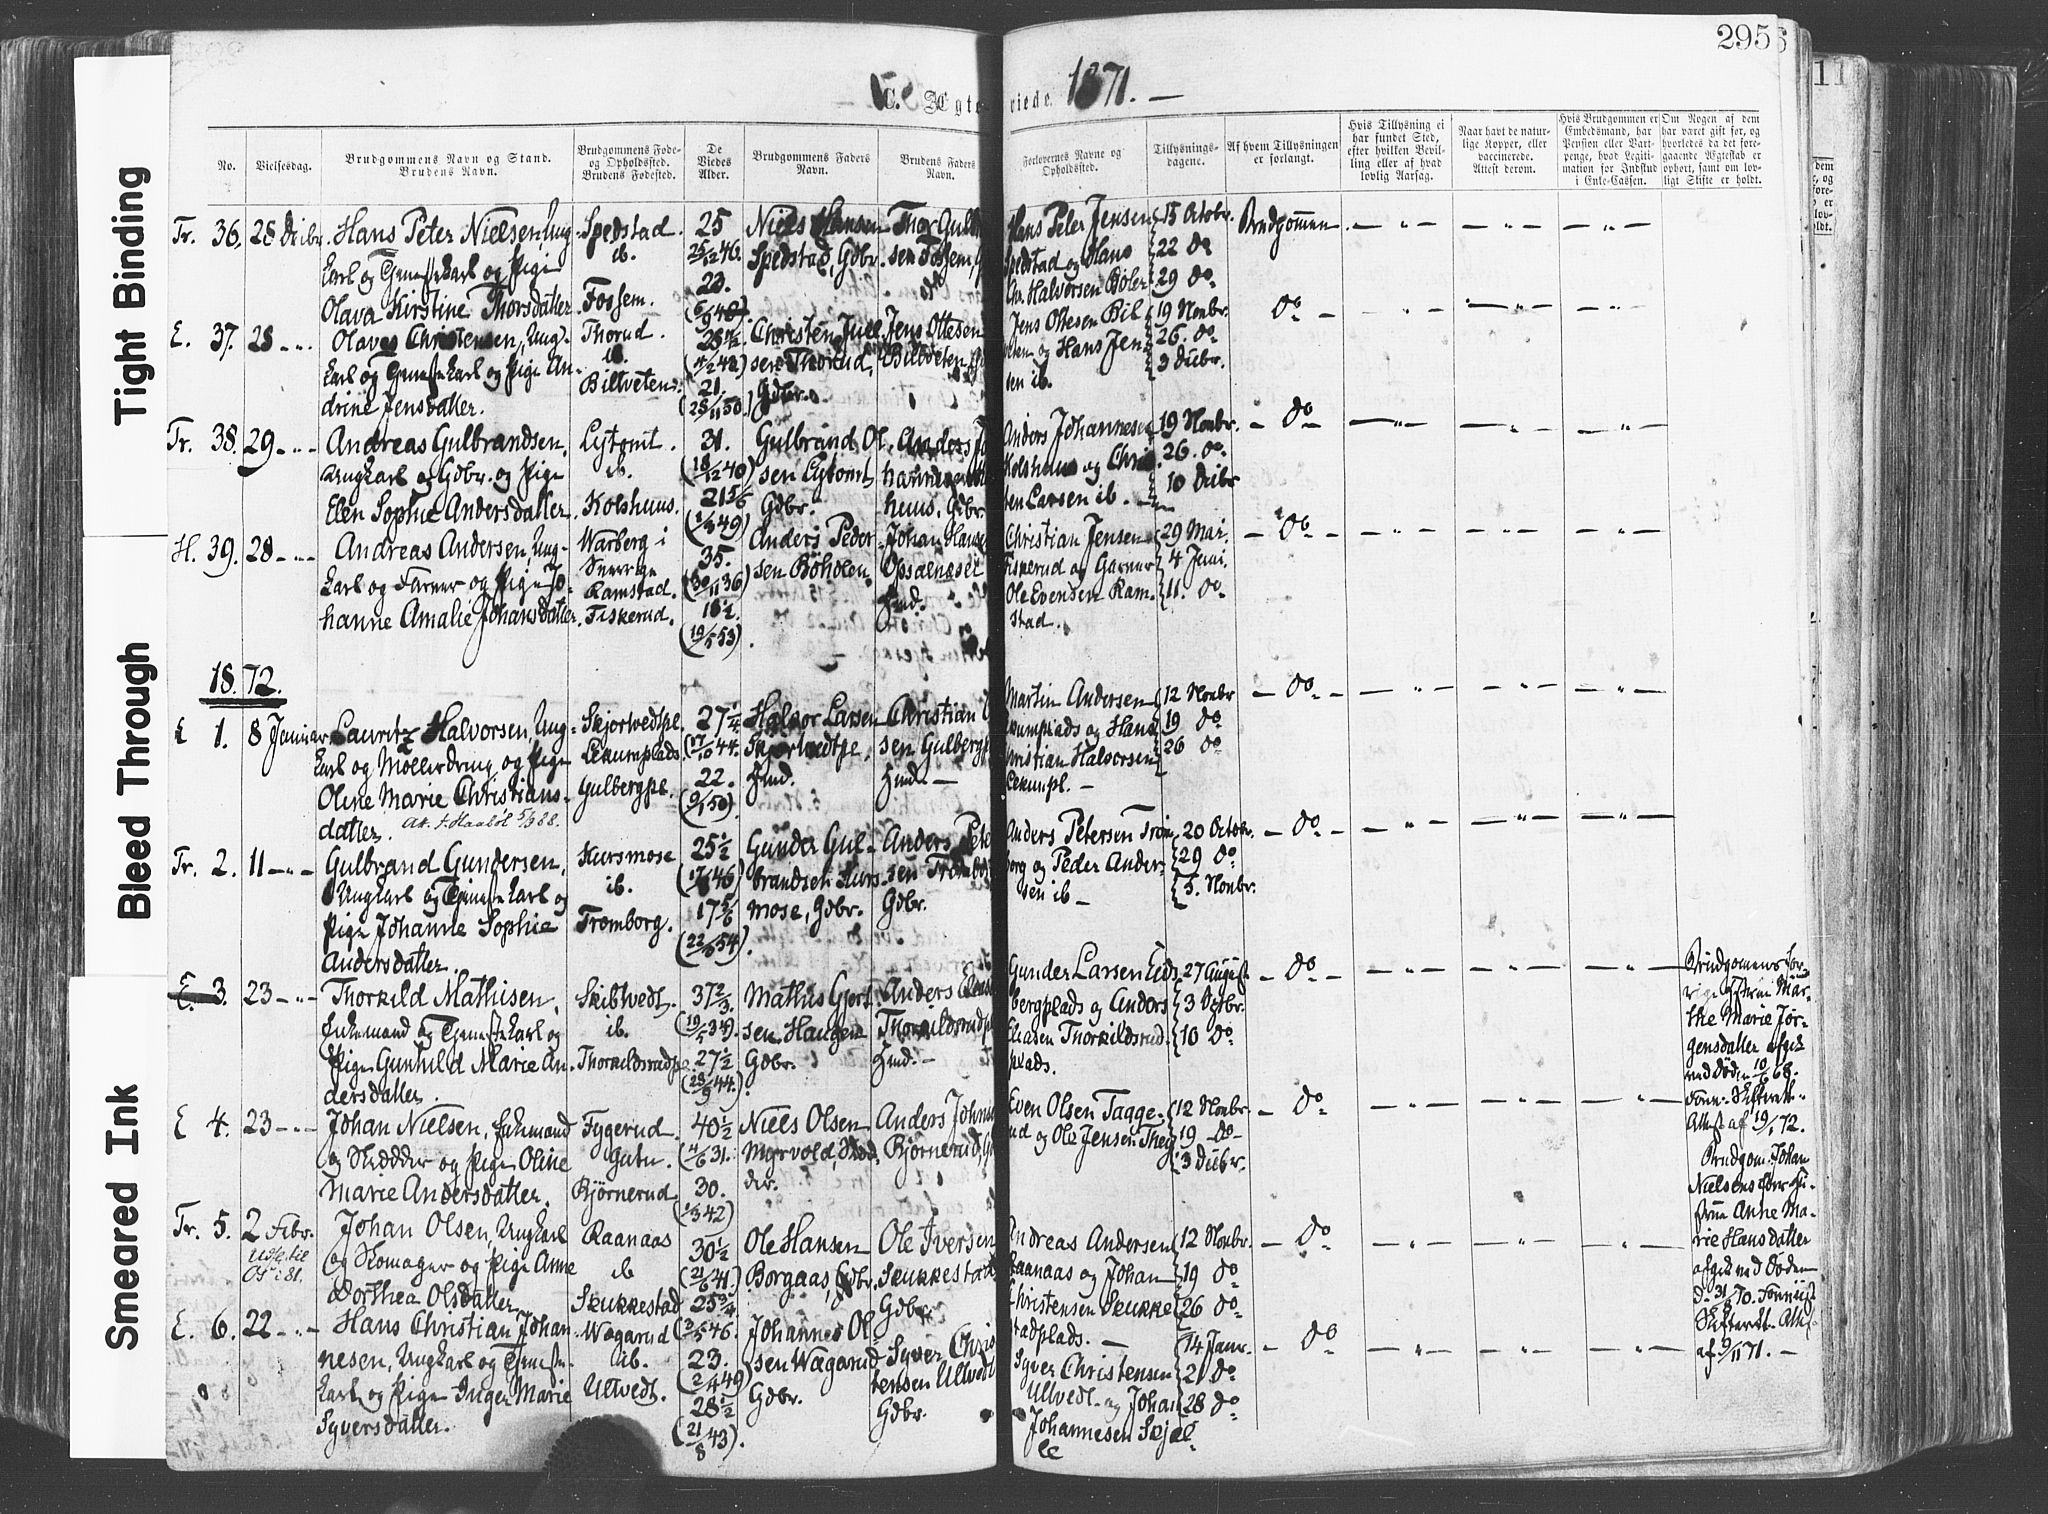 Tight Binding
Bleed Through
Smeared Ink
295
C. Ægteviede. 1871. —
No.
Vielsesdag.
Brudgommens Navn og Stand.
Brudens Navn.
Brudgommens Føde-
og Opholdssted.
Brudens Fødested.
De
Viedes
Alder.
Brudgommens Faders
Navn.
Brudens Faders
Navn.
Forlovernes Navne og
Opholdssted.
Tillysnings-
dagene.
Af hvem Tillysningen
er forlangt.
Hvis Tillysning ei
har fundet Sted,
efter hvilken Bevil-
ling eller af hvad
lovlig Aarsag.
Naar havt de natur-
lige Kopper, eller
vaccinerede.
Attest derom.
Hvis Brudgommen er
Embedsmand, har
Pension eller Vart-
penge, hvad Legiti-
mation for Indskud
i Enke-Cassen.
Om Nogen af dem
har været gift før, og
hvorledes da det fore-
gaaende Ægteskab er
ophørt, samt om lov-
ligt Skifte er holdt.
Tr. 36. 28 Decbr.
Hans Peter Nielsen, Ung-
karl og Tjenestekarl og Pige
Olava Kirstine Thorsdatter
Spedstad.
ib.
Fossem.
25
25/12 46.
23.
Niels Hansen
Spedstad, Gdbr.
Thor Gulb
sen Fossem, G
Hans Peter Jensen
Spedstad og Hans
Chr. Halvorsen Böler
15 Octobr.
22 do
29 do
Brudgommen
E. 37. 28 - " -
Olaves Christensen, Ung-
karl og Tjenestekarl og Pige An-
drine Jensdatter.
Thorud.
ib.
Billveten.
21.
(28/11 50.)
Christen Juel
sen Thorud,
Gdbr.
Jens Ottesen
Billveten
Jens Ottesen Bil
veten og Hans Jen
sen ib.
19 Novbr.
26. do
3 Decbr.
do
Tr. 38. 29 - " -
Andreas Gulbrandsen,
Ungkarl og Gdbr. og Pige
Elen Sophie Andersdatter
Lytomt.
ib.
Kolshuus.
31.
(18/12 40)
21 5/6
(1/3 49)
Gulbrand Ol
sen Lytomt
Gdbr.
Anders Jo
hannesen
huus, Gdbr.
Anders Johannesen
Kolshuus og Chris
ten Larsen ib.
19 Novbr.
26. do
10 Decbr
do
H. 39. 28 - " -
Andreas Andersen, Ung-
karl og Farver og Pige Jo
hanne Amalie Johansdatter.
Warberg i
Sverrige
Ramstad.
Fiskerud.
35.
(30/11 36)
18½.
(19/5 53)
Anders Peder
sen Böholen,
Johan Hans
Opsalnæset
Hmd.
Christian Jensen
Fiskerud og Garver
Ole Evensen Ram-
stad.
29 Mai.
4 Juni.
11. do
do
1872.
E 1. 8 Januar
Lauritz Halvorsen, Ung-
karl og Möllerdreng og Pige
Oline Marie Christians-
datter.
Skjortvedtpl.
Lekumplads.
Gulbergpl.
27¼
(17/10 44.
22.
(9/1 50)
Halvor Larsen
Skjortvedtpl.
Hmd.
Christian
sen Gulbergpl
Hmd. —
Martin Andersen
kumplads og Hans
Christian Halvorsen
Lekumpl. —
12 Novbr
19 do
26 do
do
Tr. 2. 11 - " -
Gulbrand Gundersen,
Ungkarl og Tjenestekarl og
Pige Johanne Sophie
Andersdatter.
Hursmose
ib.
Tromborg.
25½
17 5/6
Gunder Gul-
brandsen Hurs
mose, Gdbr.
Anders Pete
sen Trombo
Gdbr.
Anders Petersen Trom
borg og Peder Ander-
sen ib —
20 Octobr.
29 do
5. Novbr.
do
E. 3. 23 - " -
Thorkild Mathisen,
Enkemand og Tjenestekarl og
Pige Gunhild Marie An-
dersdatter.
Skibtvedt.
ib.
Thorkildsrudpl.
37⅔
27½
(23/9 44.)
Mathis Gjert
sen Haugen
Gdbr.
Anders Elias
Thorkildsrudpl
Hmd. —
Gunder Larsen Eids
bergplads og Anders
Eliasen Thorkildsrud
plads.
27 August
3 Septbr.
10 do
do
Brudgommens for-
rige Hustru Mar-
the Marie Jör-
gensdatter afgik
ved Døden 10/6 68.
Attest af 19/1 72.
E 4. 23 - " -
Johan Nielsen, Enkemand
og Skrædder og Pige Oline
Marie Andersdatter.
Fygerud
Bjørnerud
40½
(4/6 31.
30.
(1/3 42)
Niels Olsen
Myrvold, Skræd
der.
Anders Johan
Bjørnerud,
Even Olsen Tagge-
rud og Ole Jensen
12 Novbr.
19 do
3 Decbr.
do
Brudgom. Johan
Nielsens
Anne Ma-
rie Hansdatter
afgik ved Døden
d. 31/8 70.
af 9/11 71. —
Tr. 5. 2 Febr.
Johan Olsen, Ungkarl
og Skomager og Pige Anne
Dorthea Olsdatter
Raanaas
ib
Skukkestad
30½
(21/6 41)
25¾
Ole Hansen
Borgaas, Gdbr.
Ole Iversen
Skukkestad
Gdbr.
Andreas Andersen
Raanaas og Johan
Christensen Skukke
stadplads. —
12 Novbr.
19 do
26 do
do
E. 6. 22 - " -
Hans Christian Johan-
nesen, Ungkarl og Tjeneste-
karl og Pige Inger Marie
Syversdatter.
Wægarud
ib.
Ultvedt.
23.
(2/4 49)
28½
(21/8 43).
Johannes Ol
sen Wægarud
Gdbr.
Syver Chris
tensen Ultvedt
Gdbr.
Syver Christensen
Ultvedt og Johan
Johannesen Skjel
le
14 Janr.
21 do
28 do
do